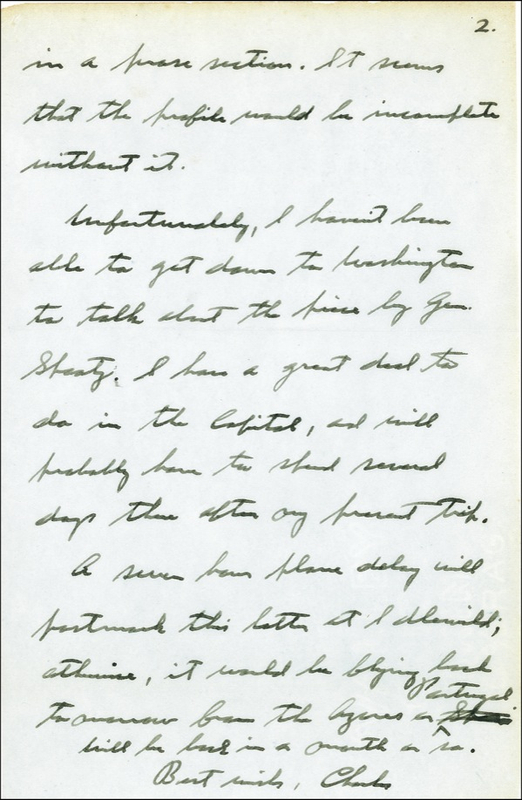 2.
in a prose section. It seems
that the profile would be incomplete
without it.
Unfortunately, I haven't been
able to get down to Washington
to talk about the piece by Gen.
I have a great deal to
do in the Capital, and will
probably have to spend several
days there after my present trip.
A seven hour plane delay will
postmark this letter at Idlewild;
otherwise, it would be flying back
tomorrow from the Azores or Portugal
Will be back in a month or so.
Best wishes, Charles